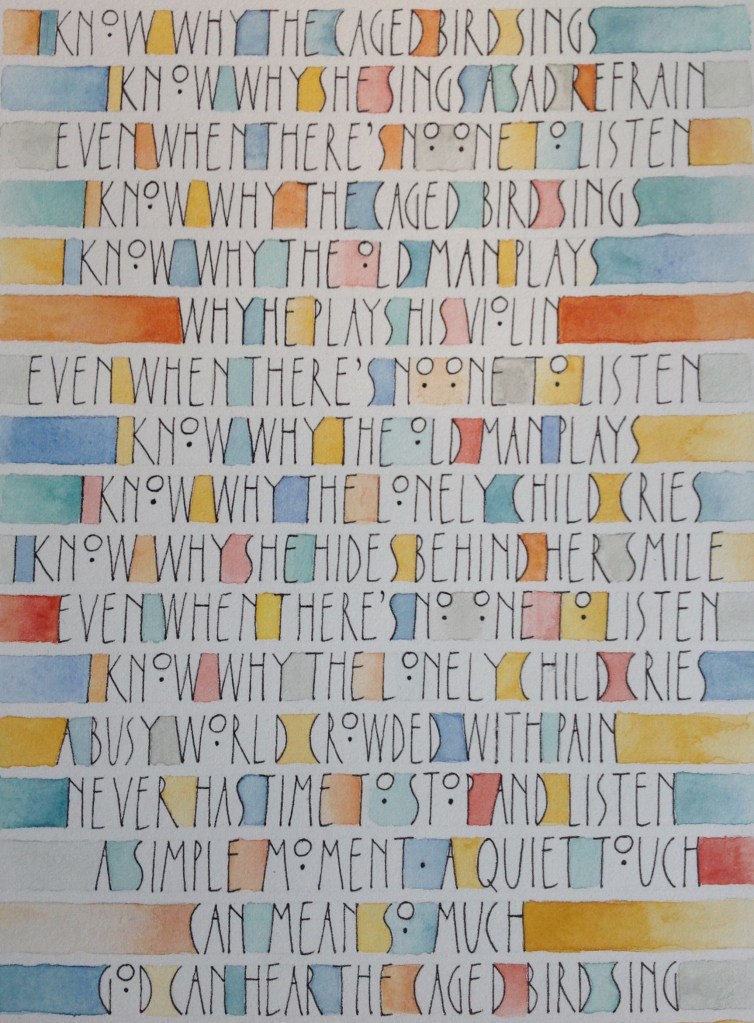 I KNOW WHY THE CAGED BIRD SINGS
I KNOW WHY SHE SINGS A SAD REFRAIN
EVEN WHEN THERE'S NO ONE TO LISTEN
I KNOW WHY THE CAGED BIRD SINGS
I KNOW WHY THE OLD MAN PLAYS
WHY HE PLAYS HIS VIOLIN
EVEN WHEN THERE'S NO ONE TO LISTEN
I KNOW WHY THE OLD MAN PLAYS
I KNOW WHY THE LONELY CHILD CRIES
I KNOW WHY SHE HIDES BEHIND HER SMILE
EVEN WHEN THERE'S NO ONE TO LISTEN
I KNOW WHY THE LONELY CHILD CRIES
A BUSY WORLD CROWDED WITH PAIN
NEVER HAS TIME TO STOP AND LISTEN
A SIMPLE MOMENT · A QUIET TOUCH
CAN MEAN SO MUCH
GOD CAN HEAR THE CAGED BIRD SING